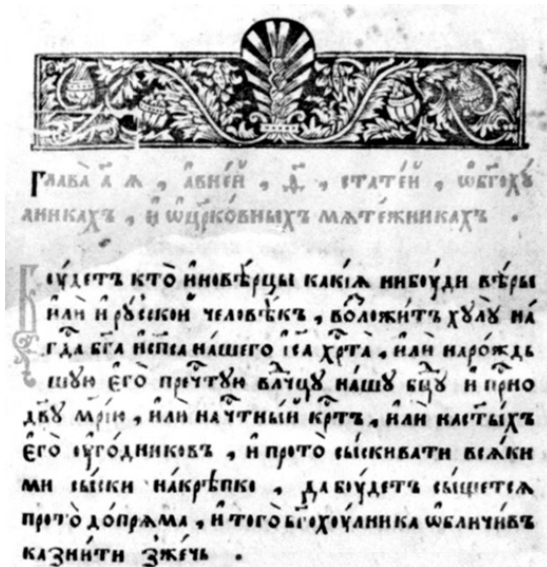 Глава̀ а҃ ꙗ, а҆вне́й, ѳ҃, стате́й, ѡ҆бг҃охꙋ́
лникахъ, и҆ ѡ҆цр҃ко́вныхъ мѧте́жникахъ.
Боу́детъ кто̀ и҆новѣ́рцы какі́ѧ нибоу́ди вѣ́ры
и҆лѝ и҆ рꙋ́сскои человѣ́къ, возложи́тъ хꙋлꙋ̀ на́
гд҃а бг҃а и҆ сп҃са на́шего і҆с҃а хрⷭ҇та̀, и҆лѝ на ро́ждь
шꙋю є҆го̀ прⷱ҇тꙋю влⷣчцꙋ на́шꙋ бцⷣꙋ и҆ прⷭ҇но
дв҃ꙋ мр҃і́ю, и҆лѝ на чⷭ҇тны́и крⷭ҇тъ, и҆лѝ на ст҃ы́хъ
є҆го̀ оу҆го́дниковъ, и҆ про то̀ сы́скивати всѧ́ки
ми сы́ски на́крѣпко, да боу́детъ сы́щетсѧ
про то̀ до́прѧма, и҆ того̀ бг҃охоу́лника ѡ҆бличи́въ
казни́ти зже́чь.